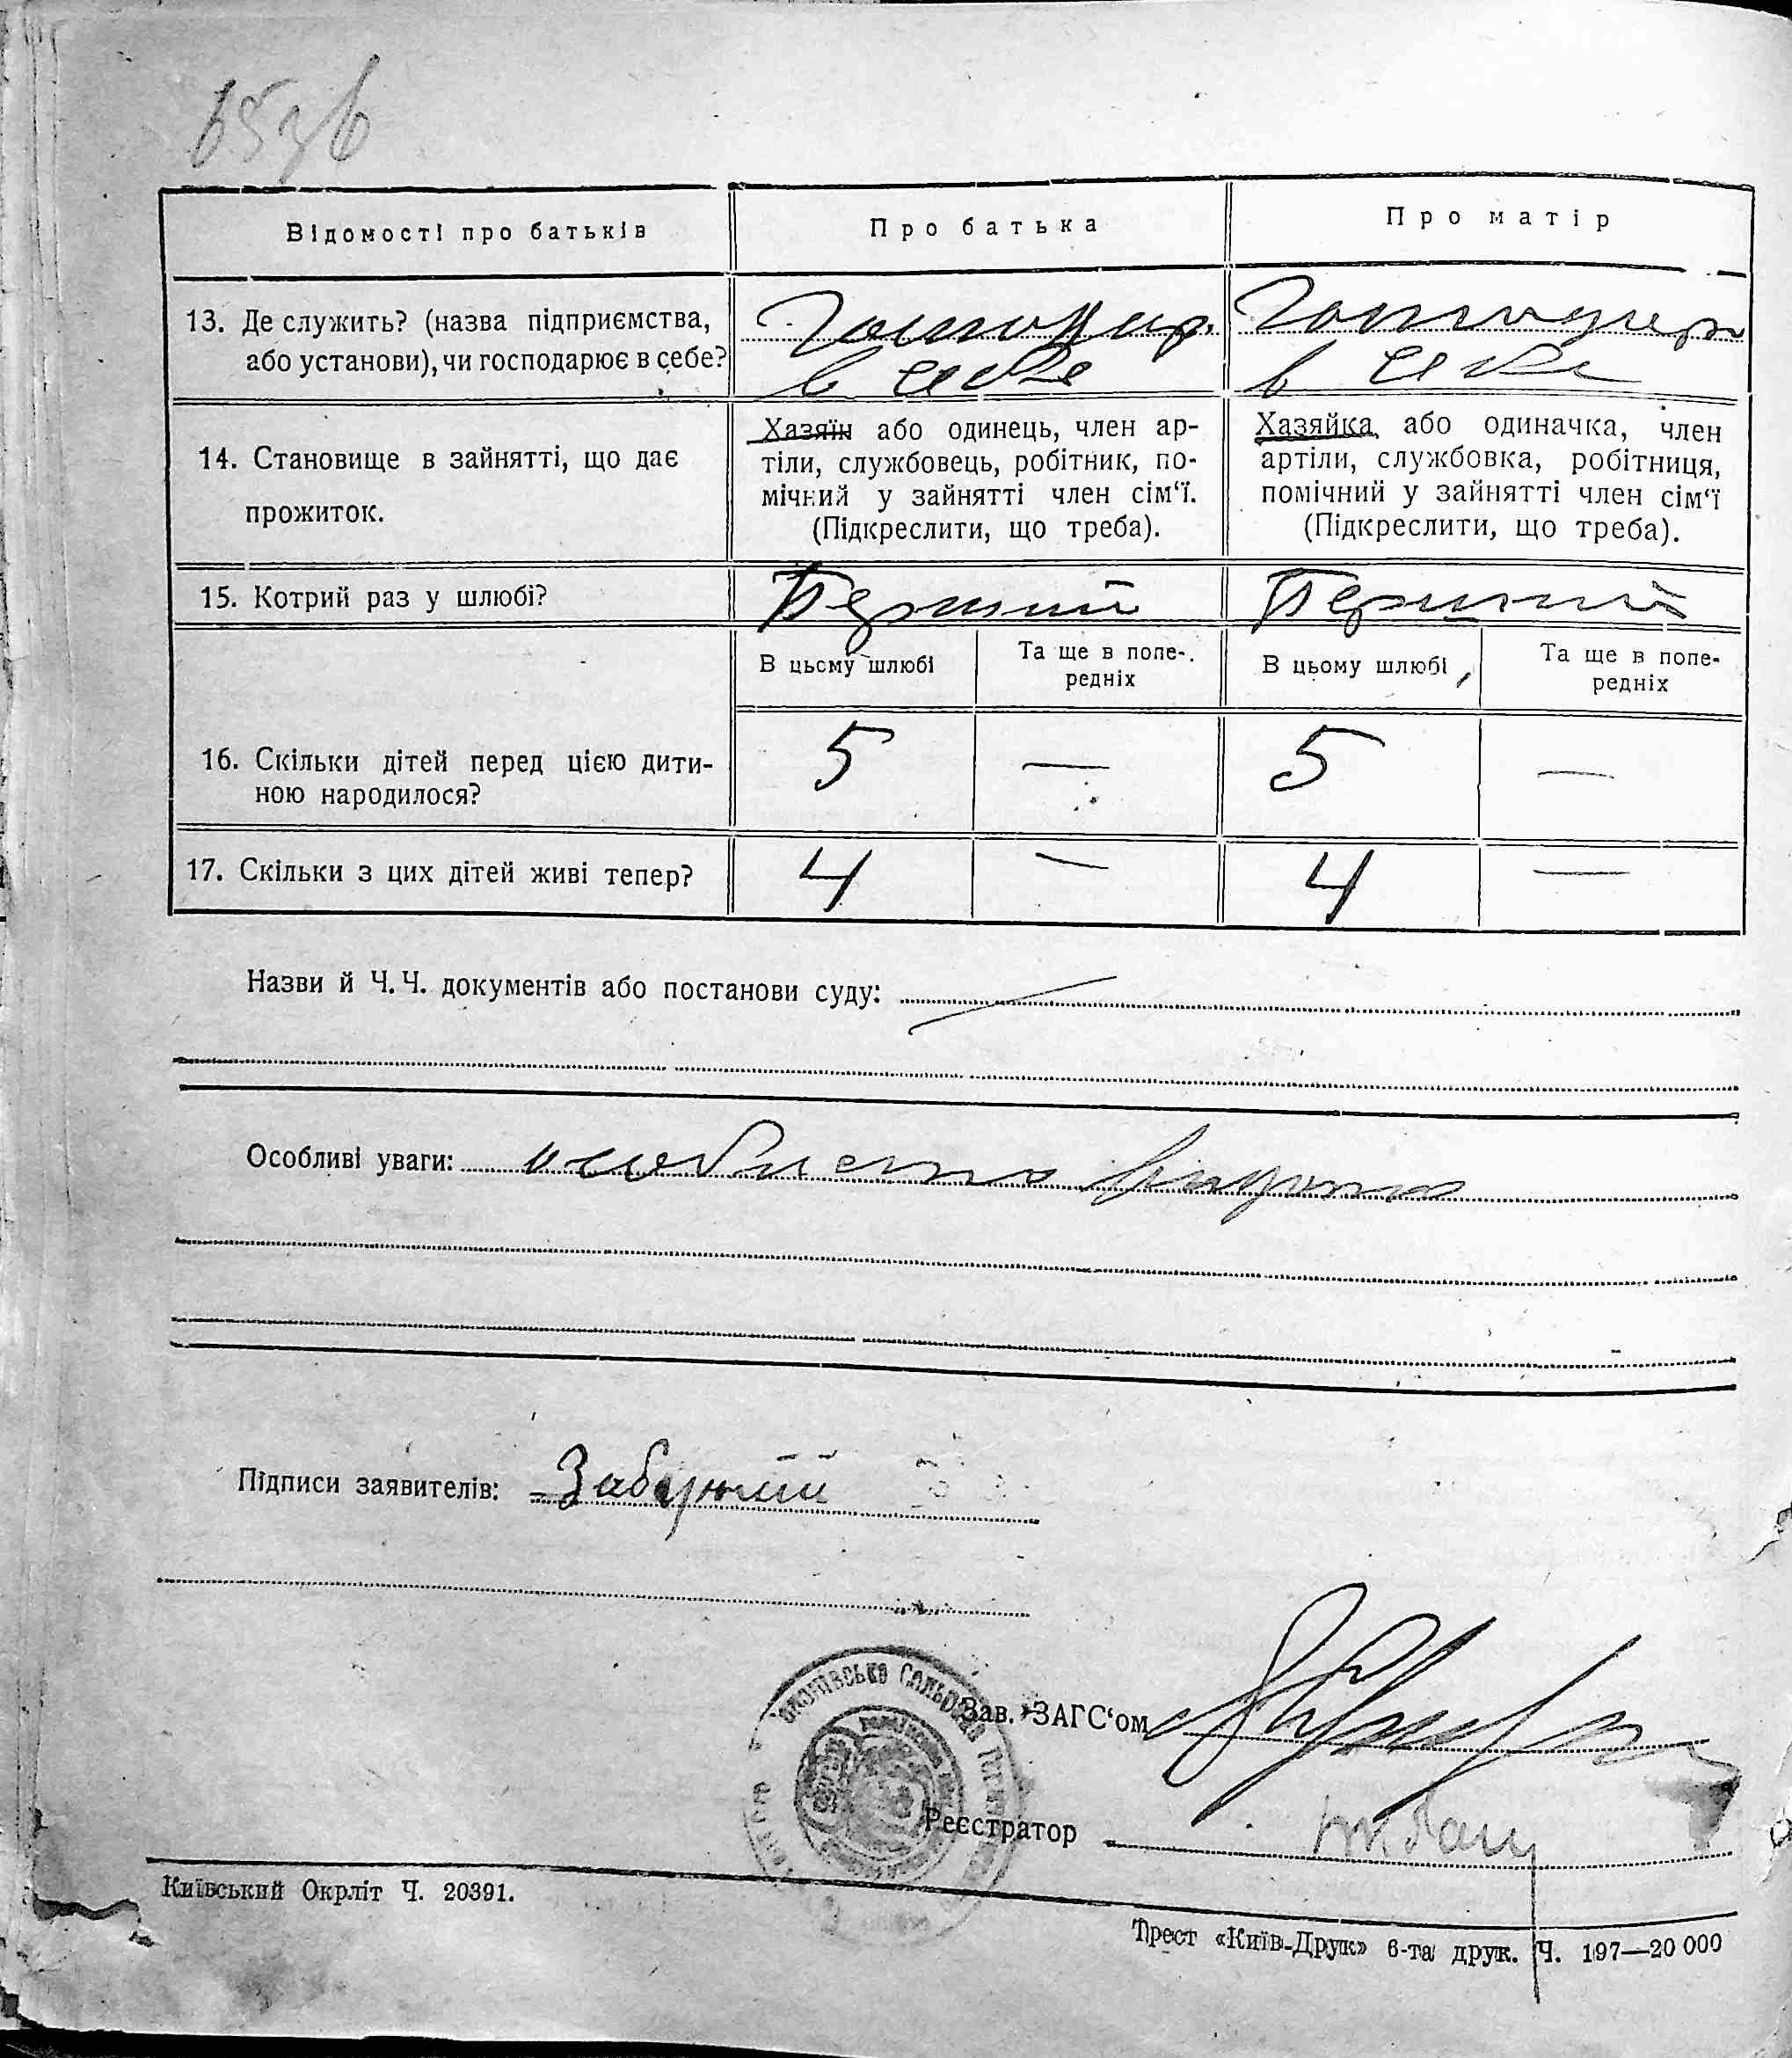 Відомості про батьків
Про батька
Про матір
13. Де служить? (назва підприємства,
або установи), чи господарює в себе?
Господар.
в себе
Господар
в себе
14. Становище в зайнятті, що дає
прожиток.
Хазяїн або одинець, член ар-
тіли, службовець, робітник, по-
мічний у зайнятті член сім‘ї.
(Підкреслити, що треба).
Хазяйка, або одиначка, член
артіли, службовка, робітниця,
помічний у зайнятті член сім‘ї
(Підкреслити, що треба).
15. Котрий раз у шлюбі?
Перший
Перший
В цьому шлюбі
Та ще в попе-
редніх
В цьому шлюбі
Та ще в попе-
редніх
16. Скільки дітей перед цією дити-
ною народилося?
5 — 5 —
17. Скільки з цих дітей живі тепер?
4 — 4 —
Назви й Ч. Ч. документів або постанови суду:
Особливі уваги: особисто
Підписи заявителів:
Зав. ЗАГС‘ом
Реєстратор
Київський Окрліт Ч. 20391.
Трест «Київ-Друк» 6-та друк. Ч. 197—20 000